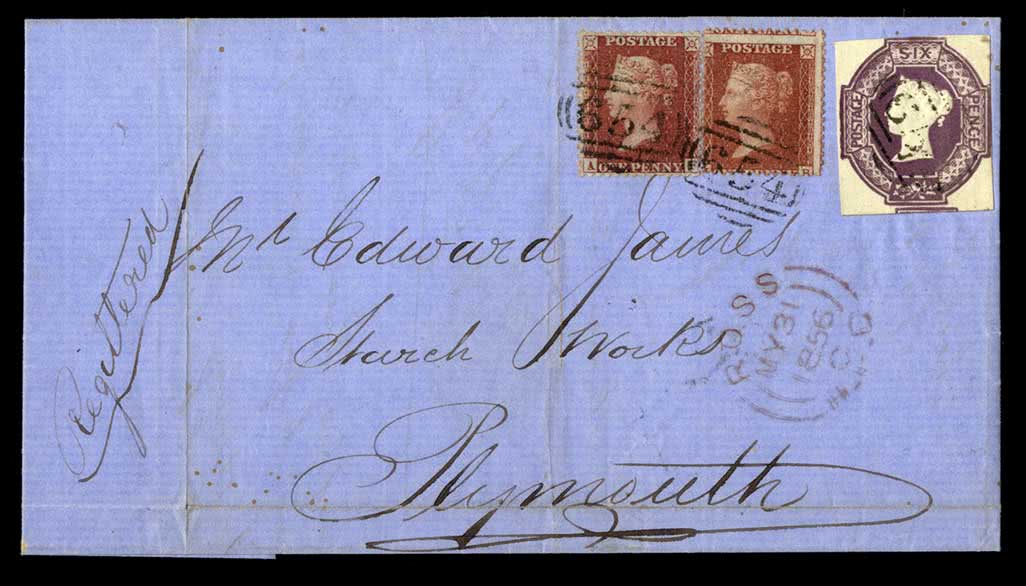 POSTAGE
ONE PENNY
POSTAGE
SIX
PENCE
POSTAGE
654
654
Registered
Mr Edward James
Starch Works
Plymouth
ROSS
MY 31
1856
C